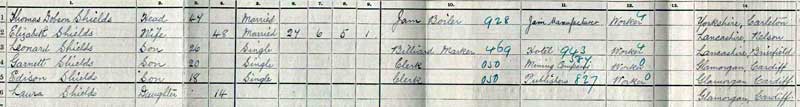 1. 2. 3. 4. 5. 6. 7. 8. 9. 10. 11. 12. 13. 14.
1 Thomas Dobson Shields Head 47 Married Jam Boiler 928 Jam Manufacturer Worker Yorkshire, Carleton
2 Elizabeth Shields Wife 48 Married 27 6 5 1 Lancashire Nelson
3 Leonard Shields Son 26 Single Billiard Marker 469 Hotel 943 Worker Lancashire Brierfield
4 Garnett Shields Son 20 Single Clerk 050 Mining Company Worker Glamorgan, Cardiff
5 Edison Shields Son 18 Single Clerk 050 Publishers 827 Worker Glamorgan Cardiff
6 Laura Shields Daughter 14 Glamorgan, Cardiff.